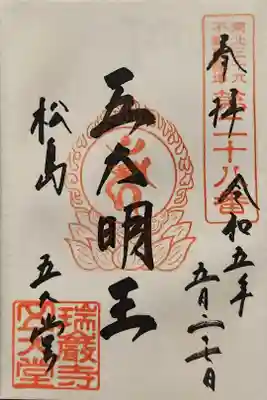 奉拝
令和五年
五月二十日
東北三十六
不動尊霊場
第二十八番
五大明王
松島
五大堂
瑞巌寺
五大堂